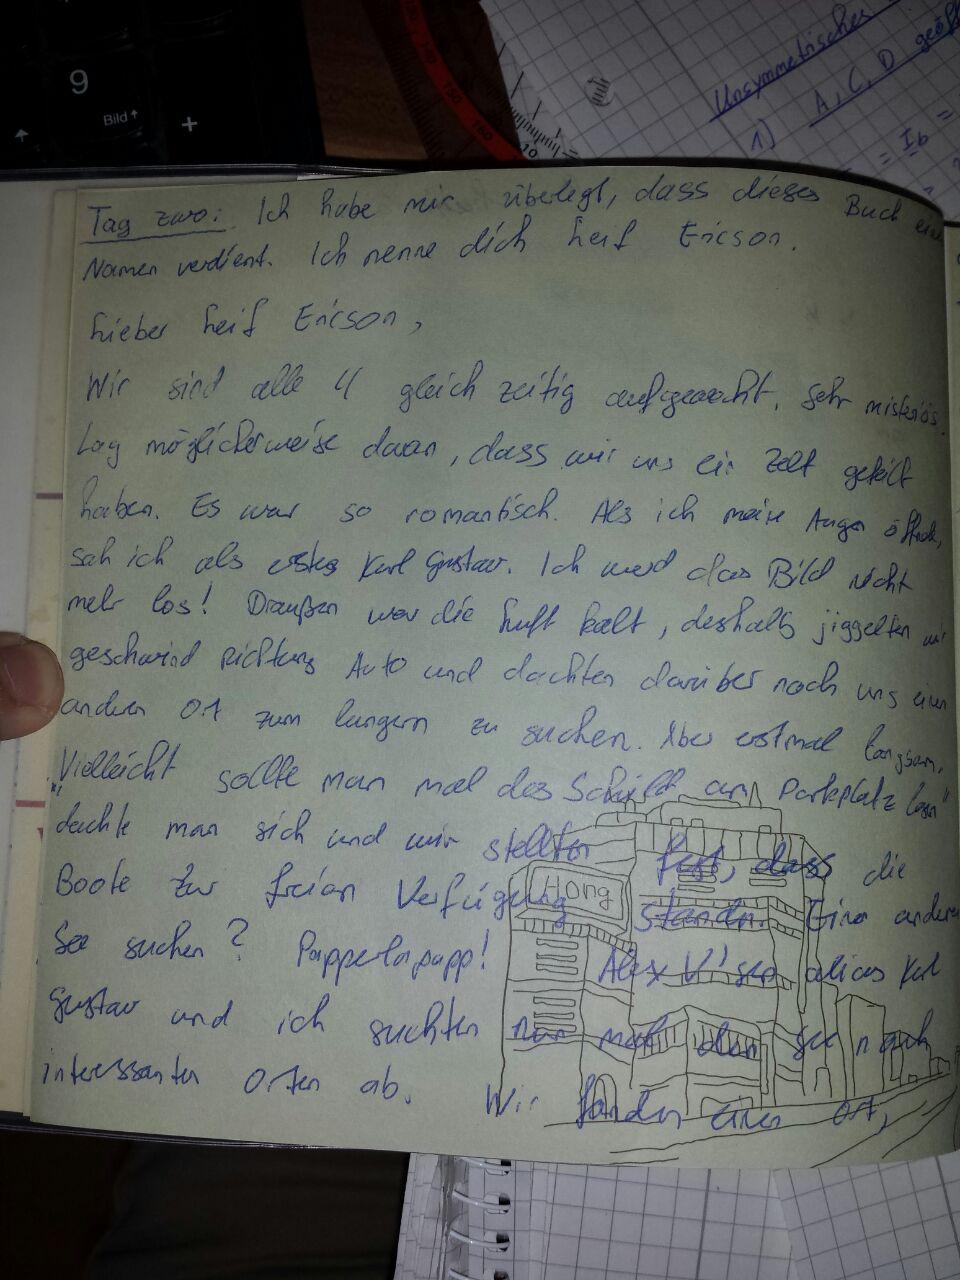 9
Bild ↑
+
150
160
10
Unsymmetrisches
1)
A, C, D
= Ib =
Tag zwo: Ich habe mir überlegt, dass dieses Buch einen
Namen verdient. Ich nenne dich Leif Ericson.
Lieber Leif Ericson,
Wir sind alle 4 gleich zeitig aufgewacht, sehr misteriös.
Lag möglicherweise daran, dass wir uns ein Zelt geteilt
haben. Es war so romantisch. Als ich meine Augen öffnete,
sah ich als erstes Karl Gustav. Ich werd das Bild nicht
mehr los! Draußen war die Luft kalt, deshalb jiggelten wir
geschwind Richtung Auto und dachten darüber nach uns einen
anderen Ort zum lungern zu suchen. Aber erstmal langsam.
"Vielleicht sollte man mal das Schild am Parkplatz lesen"
dachte man sich und wir stellten fest, dass die
Boote zur freien Verfügung standen. Einen anderen
See suchen? Papperlapapp! Alex alias Karl
Gustav und ich suchten nun mal den see nach
interessanten Orten ab. Wir fanden einen Ort,
Hong